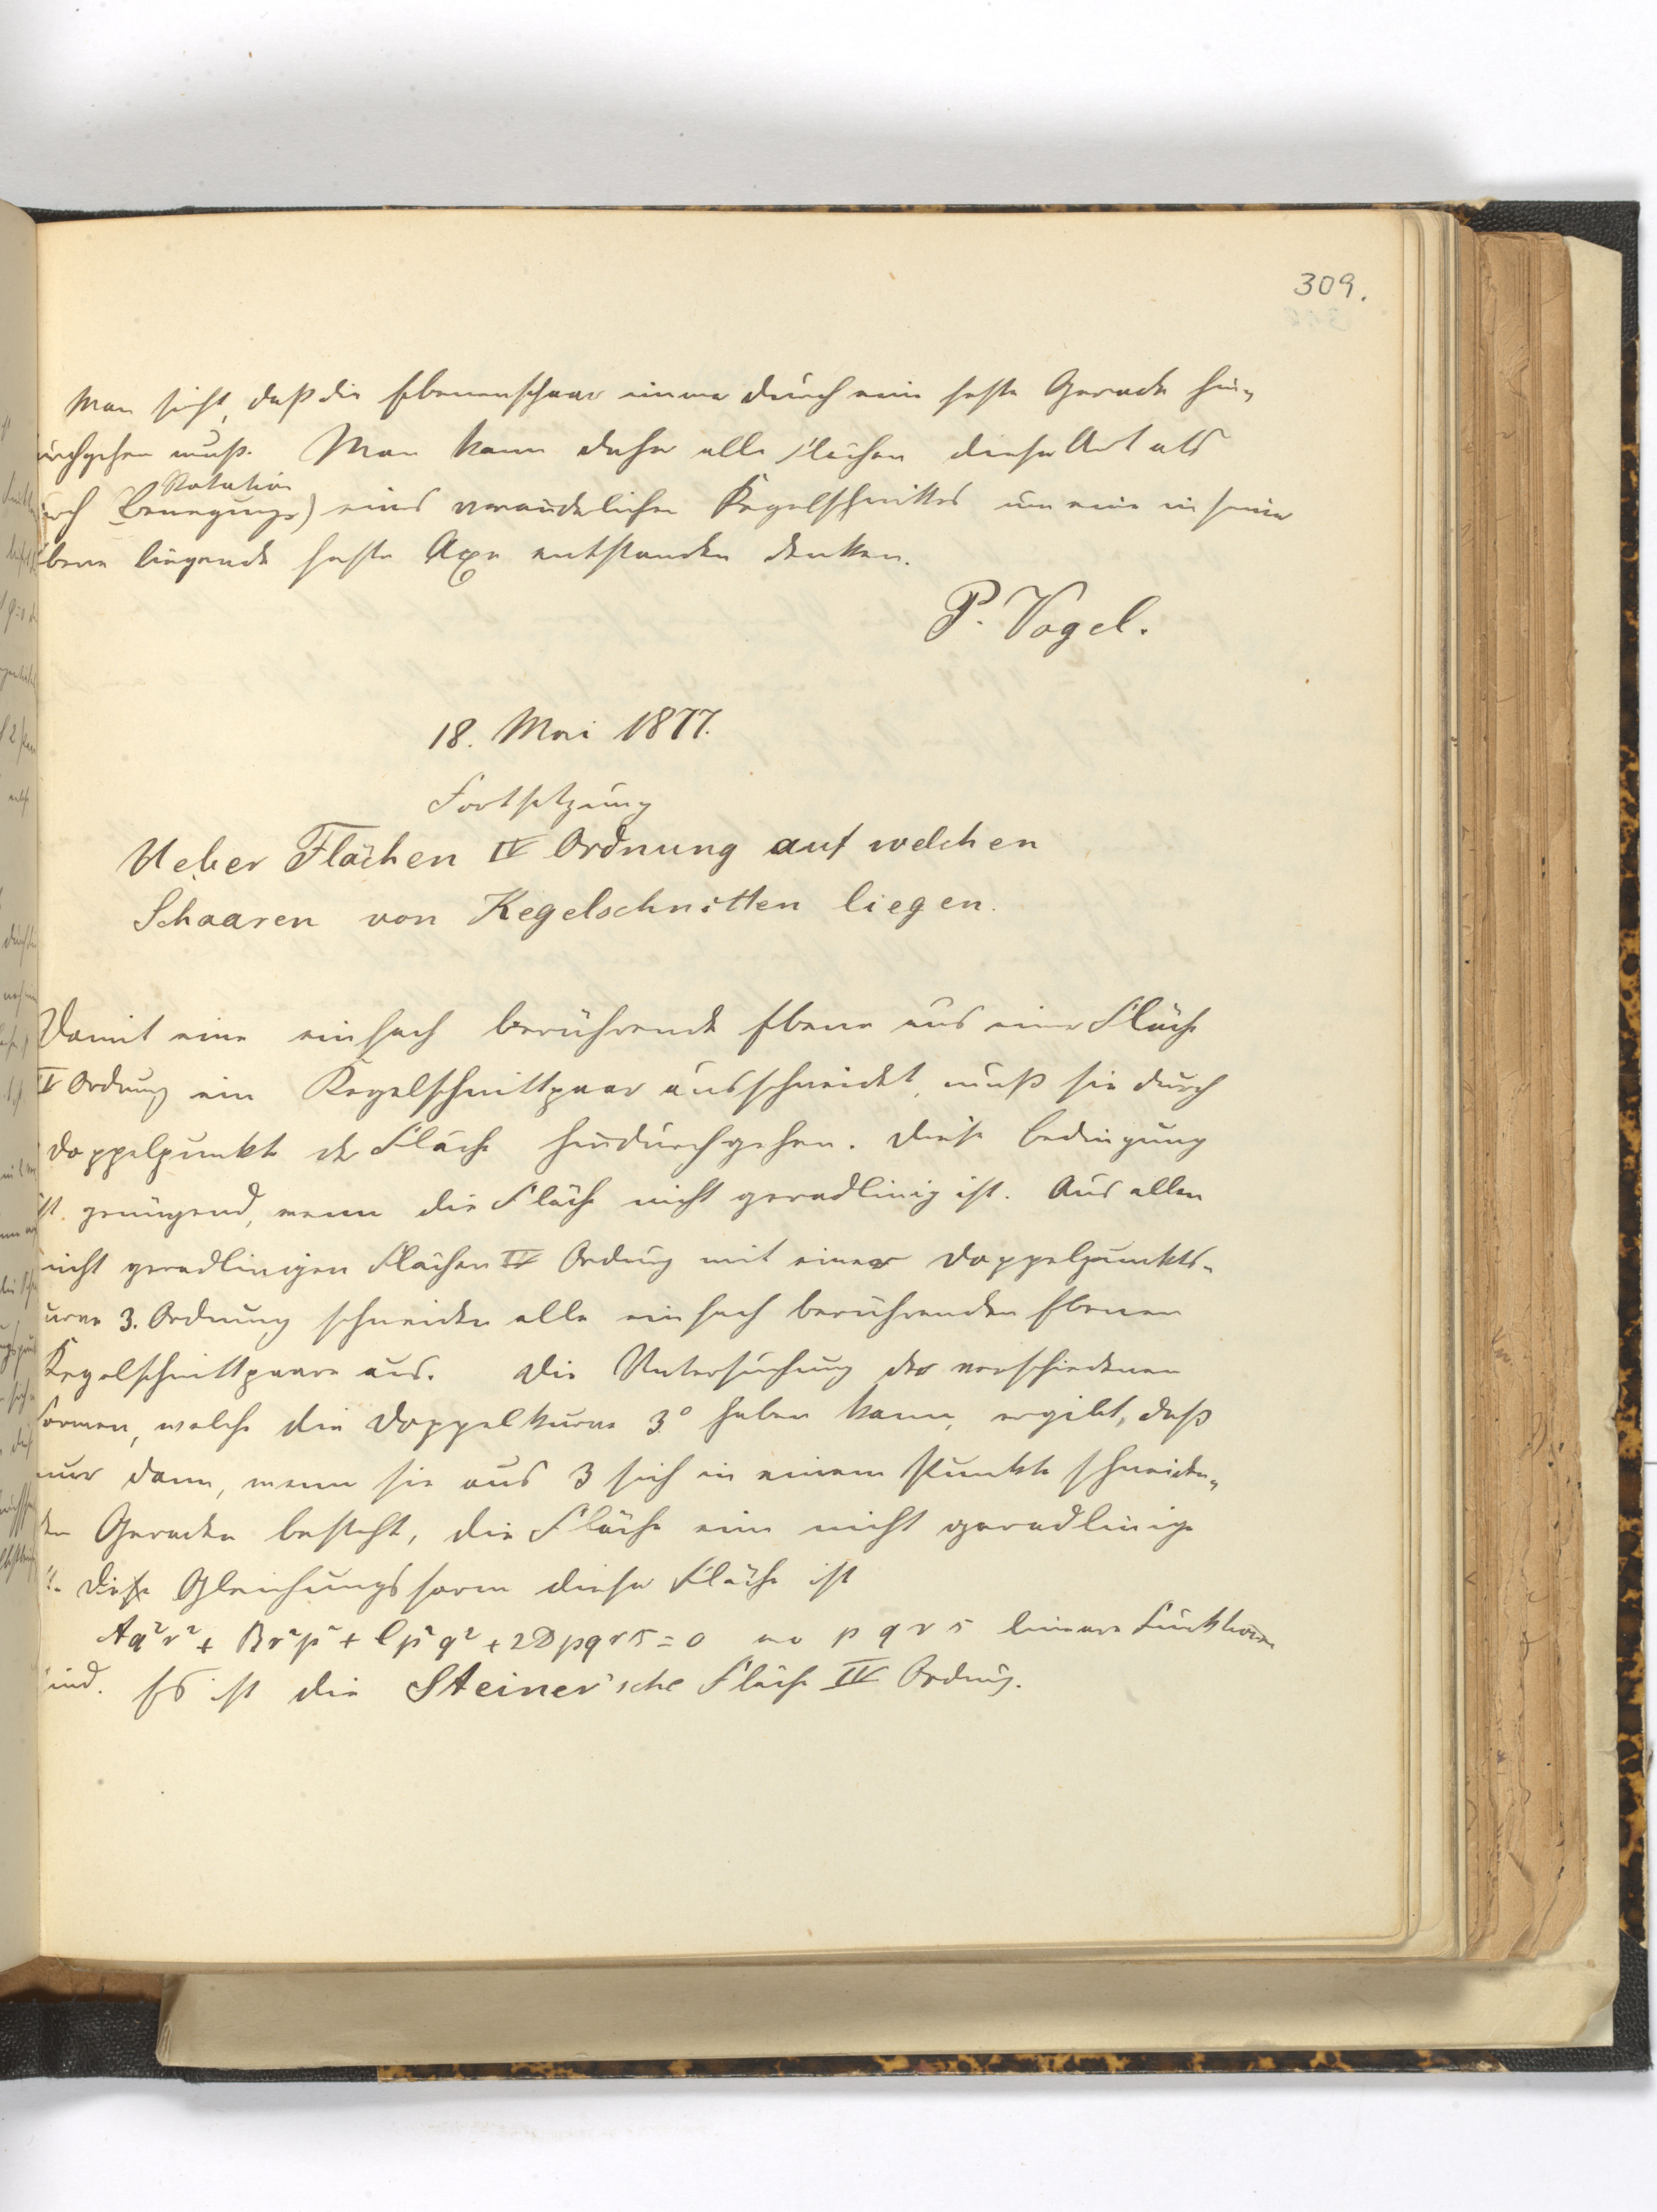 309.
Man sieht, daß die Ebenenschaar immer durch eine feste Gerade hin-
urchgehen muß. Man kann daher alle Flächen dieser Art als
Rotation
rch Bewegung) eines veränderlichen Kegelschnittes um eine in seiner
bene liegende feste Axe entstanden denken.
P. Vogel.
18. Mai 1877.
Fortsetzung
Ueber Flächen IV Ordnung auf welchen
Schaaren von Kegelschnitten liegen.
Damit eine einfach berührende Ebene aus einer Fläche
IV Ordnung ein Kegelschnittpaar ausschneidet, muß sie durch
Doppelpunkte der Fläche hindurchgehen. Diese Bedingung
ist genügend, wenn die Fläche nicht geradlinig ist. Aus allen
nicht geradlinigen Flächen IV Ordnung mit einer Doppelpunkts-
urve 3. Ordnung schneiden alle einfach berührenden Ebenen
Kegelschnittpaare aus. Die Untersuchung der verschiedenen
Formen, welche die Doppelkurve 3° haben kann, ergibt, daß
nur dann, wenn sie aus 3 sich in einem Punkte schneiden-
den Geraden besteht, die Fläche eine nicht geradlinige
ist. Die Gleichungsform dieser Fläche ist
Aq²r² + Br²p² + Cp²q² + 2Dpqrs = 0 wo p q r s lineare Funktionen
sind. Es ist die Steiner'sche Fläche IV Ordnung.